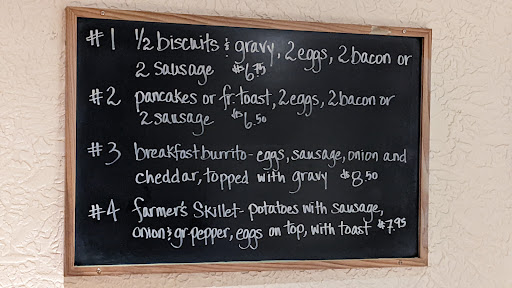 #1 ½ biscuits & gravy, 2 eggs, 2 bacon or
2 sausage $6.75
#2 pancakes or fr. toast, 2 eggs, 2 bacon or
2 sausage $6.50
#3 breakfast burrito - eggs, sausage, onion and
cheddar, topped with gravy $8.50
#4 farmer's skillet - potatoes with sausage,
onion & gr. pepper, eggs on top, with toast $7.95